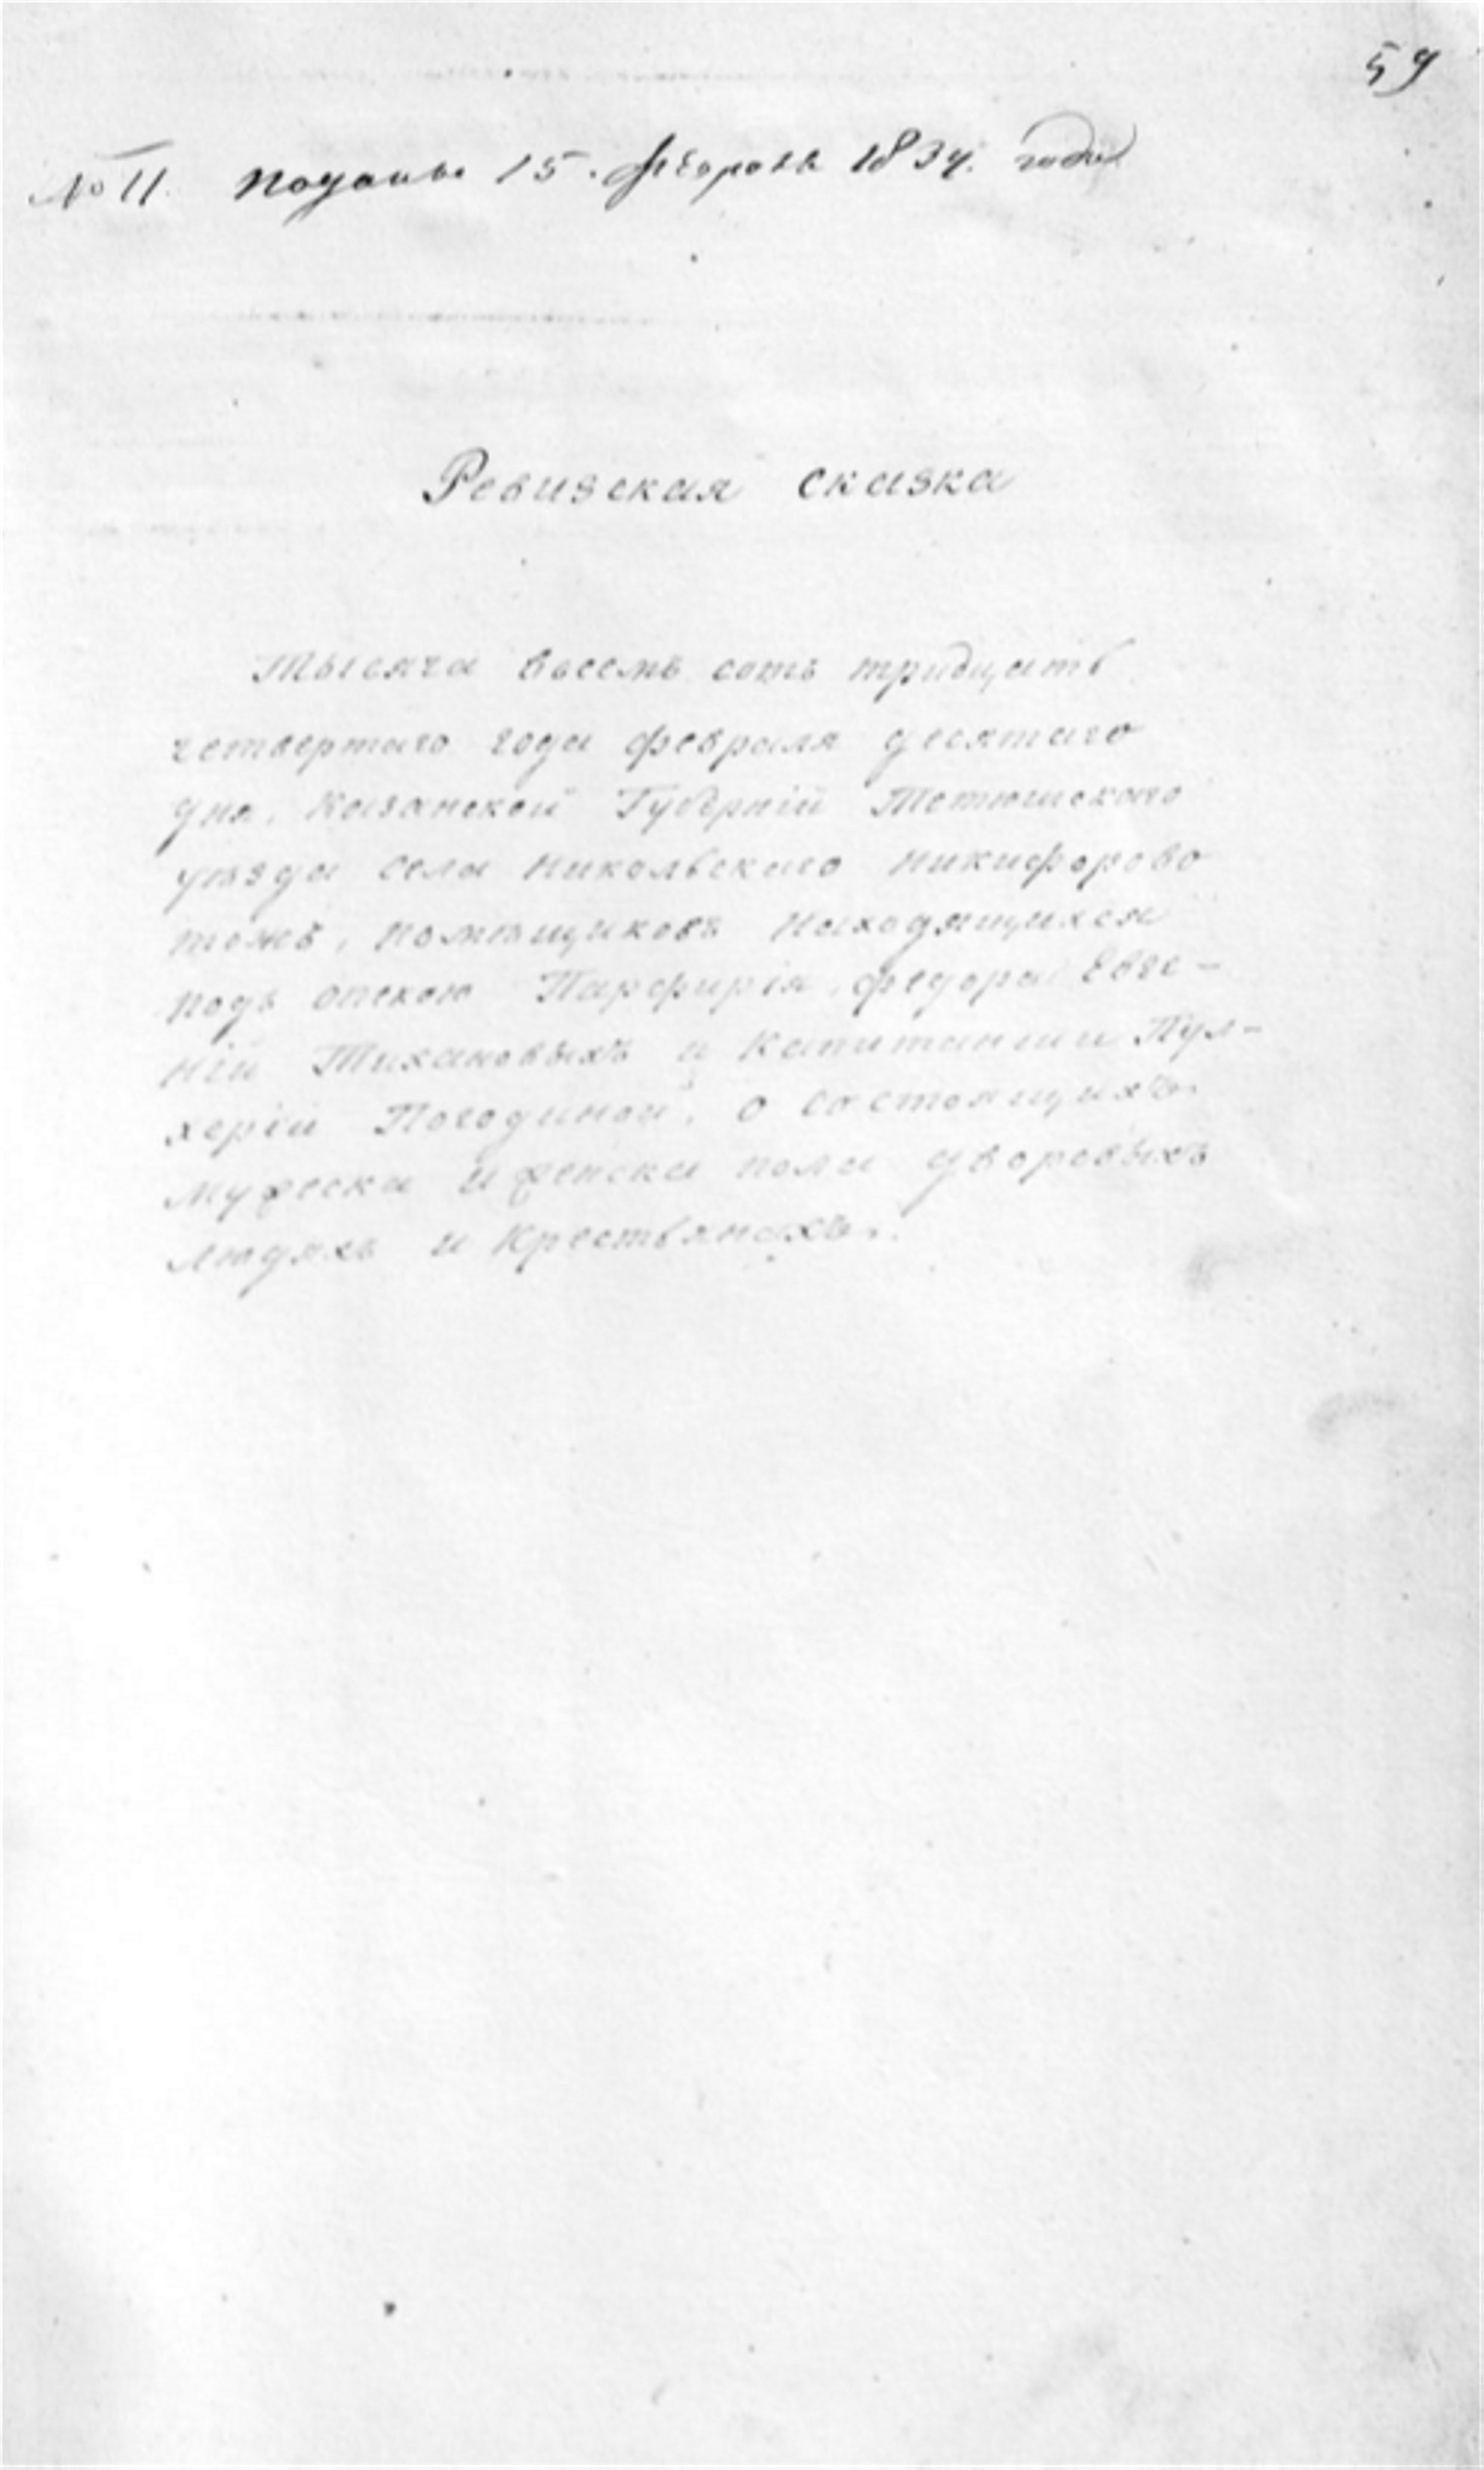 59
№ 11. Подано 15. Февраля 1834. года
Ревизская сказка
Тысяча восемь сотъ тридцать
четвертаго года февраля десятаго
дня, Казанской Губѣрніи Тетюшскаго
уѣзда села Никольскаго Никифорово
тожъ, помѣщиковъ находящихся
подъ опекою Парфирія, Федора Евге-
ніи Тихановыхъ и Капитанши Пул-
херіи Погодиной, о состоящихъ
мужеска и женска пола дворовыхъ
людяхъ и Крестьянахъ.